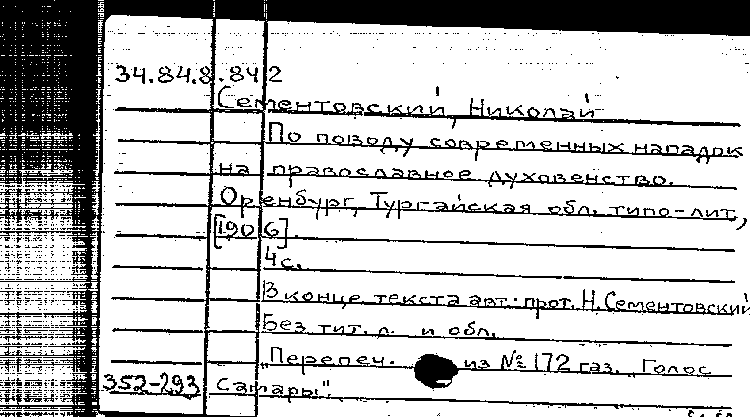 34.84.8.842
Сементовский, Николай
По поводу современных нападок
на православное духовенство.
Оренбург, Тургайская обл. типо-лит,
[1906].
4с.
В конце текста авт: прот. Н. Сементовский
Без тит. л. и обл.
"Перепеч. из № 172 газ. "Голос
352-293 Самары".